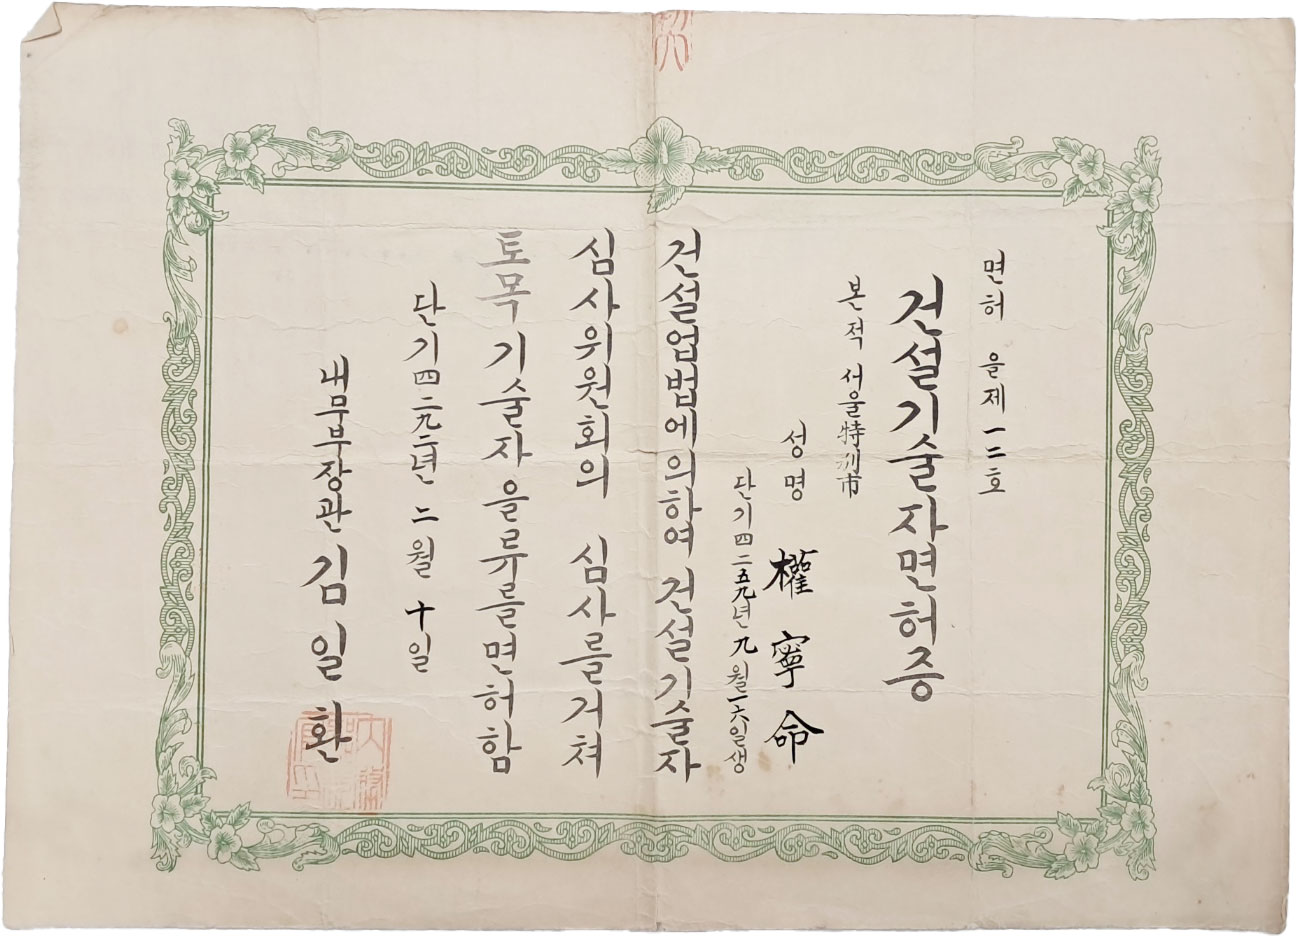 면허 을제 一二호
건설기술자면허증
본적 서울特別市
성명 權寧命
단기四二五九년 九월一六일생
건설업법에의하여 건설기술자
심사위원회의 심사를거쳐
토목기술자을류를면허함
단기四二九二년 二월 十일
내무부장관 김일환